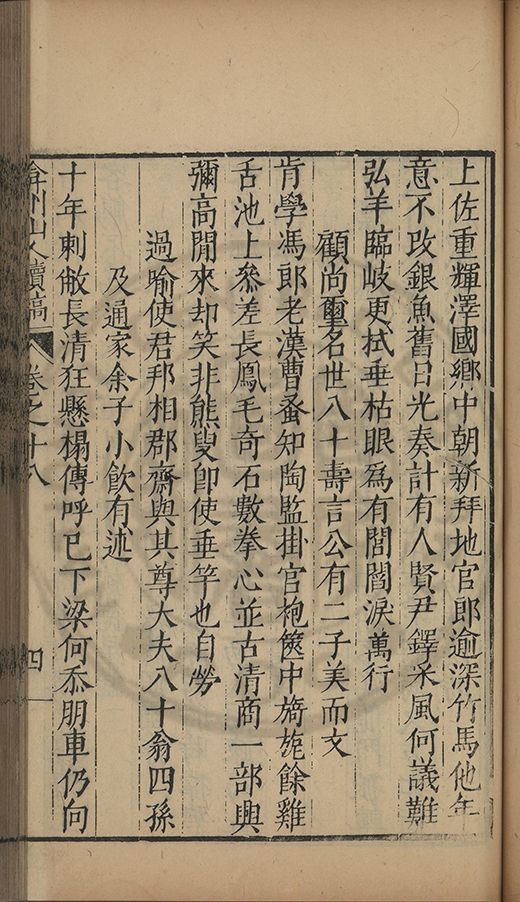 上佐重輝澤國鄉中朝新拜地官郎逾深竹馬他年
意不改銀魚舊日光奏計有人賢尹鐸采風何議難
弘羊臨岐更拭垂枯眼為有閭閻淚萬行
顧尚璽名世八十壽言公有二子美而文
肯學馮郎老漢曹蚤知陶監掛官袍篋中旖旎餘雞
舌池上參差長鳳毛奇石數拳心並古清商一部興
彌高閒來却笑非熊叟卽使垂竿也自勞
過喻使君邦相郡齋與其尊大夫八十翁四孫
及通家余子小飲有述
十年刺敝長清狂懸榻傳呼已下梁何忝朋車仍向
弇州山人續稿 卷之十八 四